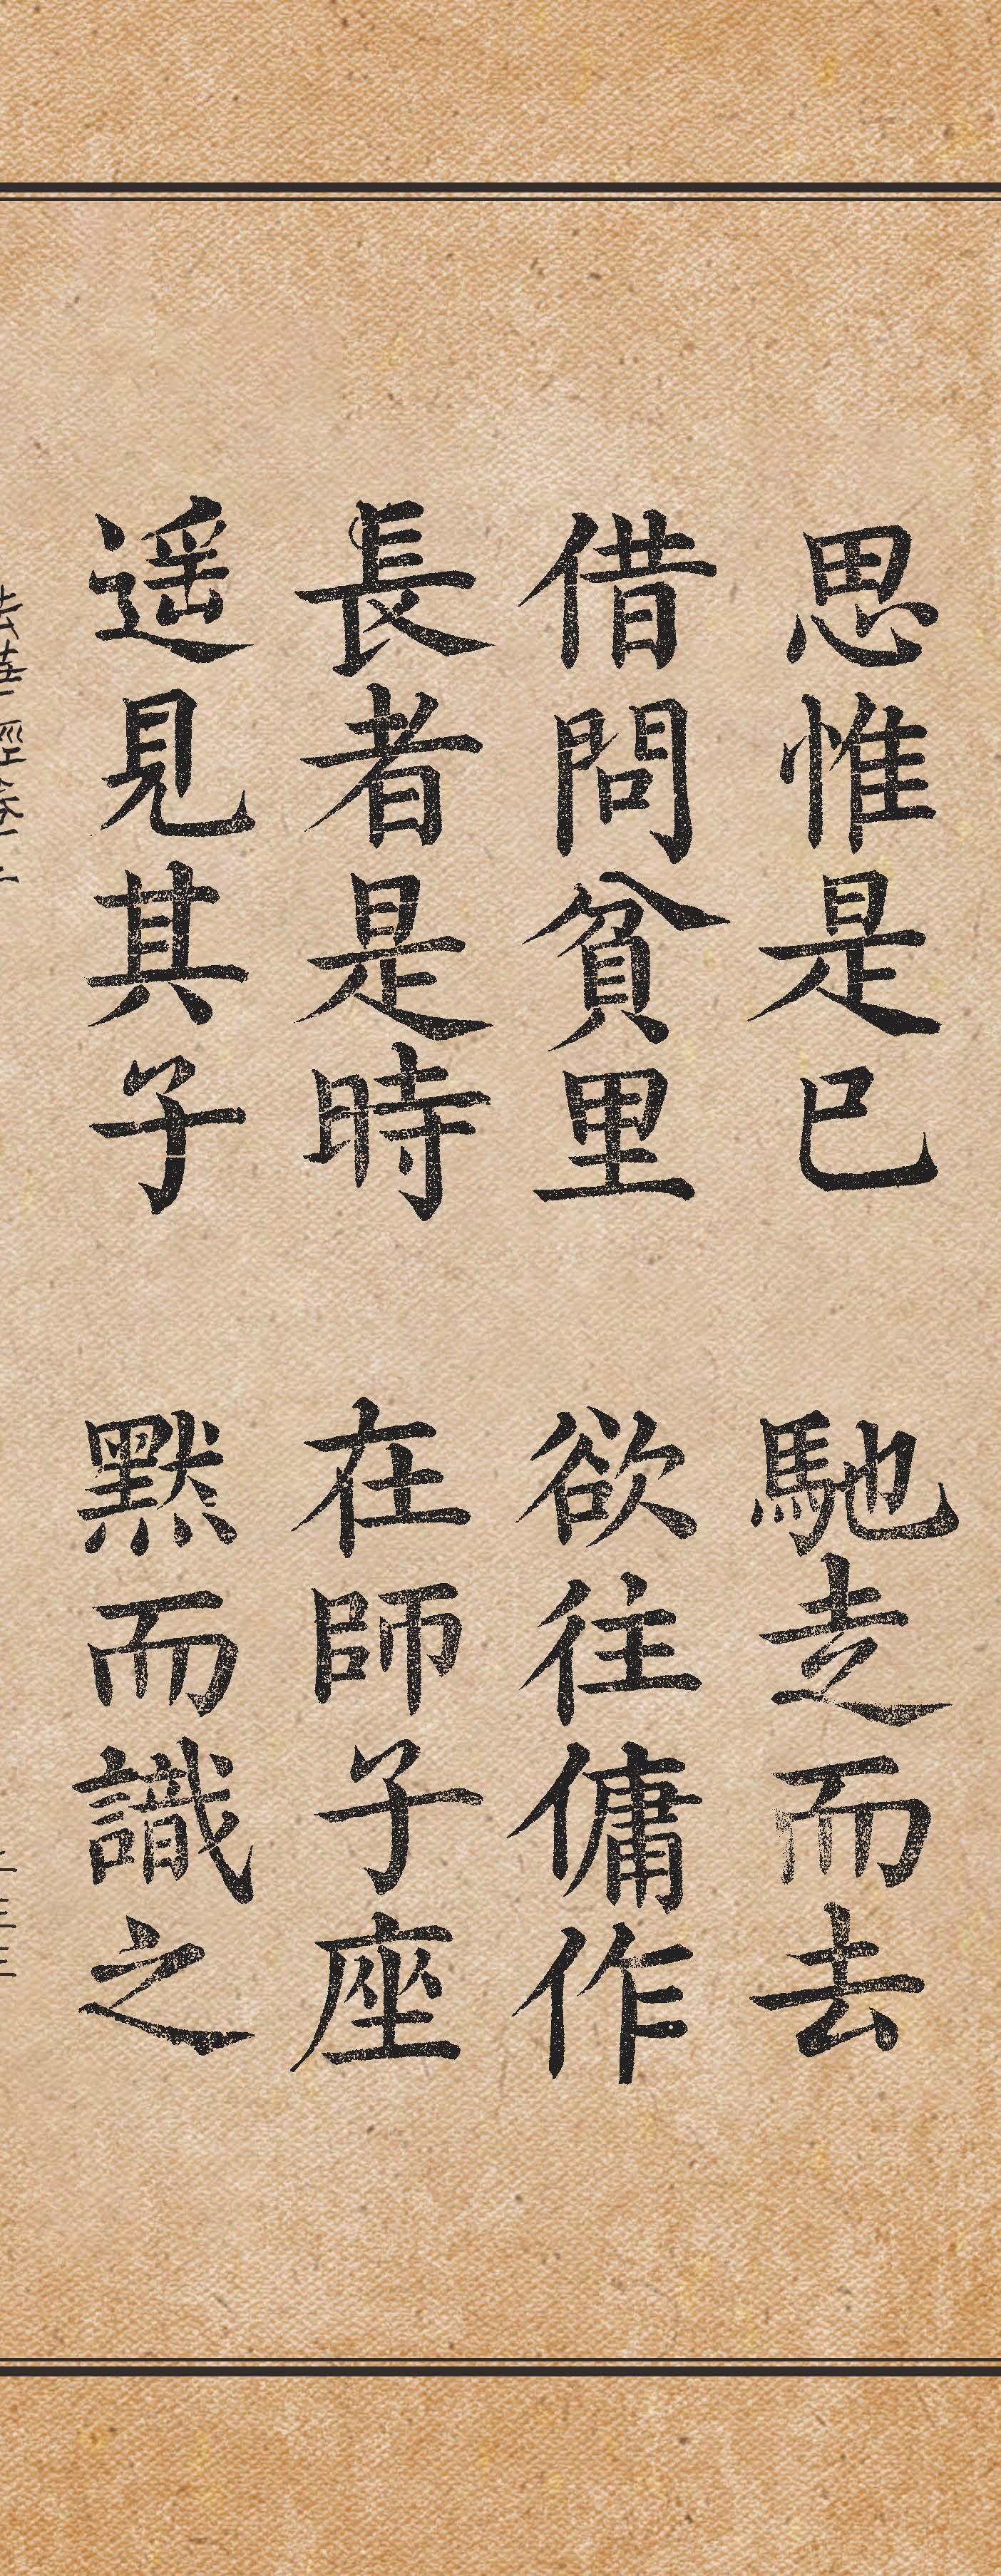 思惟是已 馳走而去
借問貧里 欲往傭作
長者是時 在師子座
遥見其子 默而識之